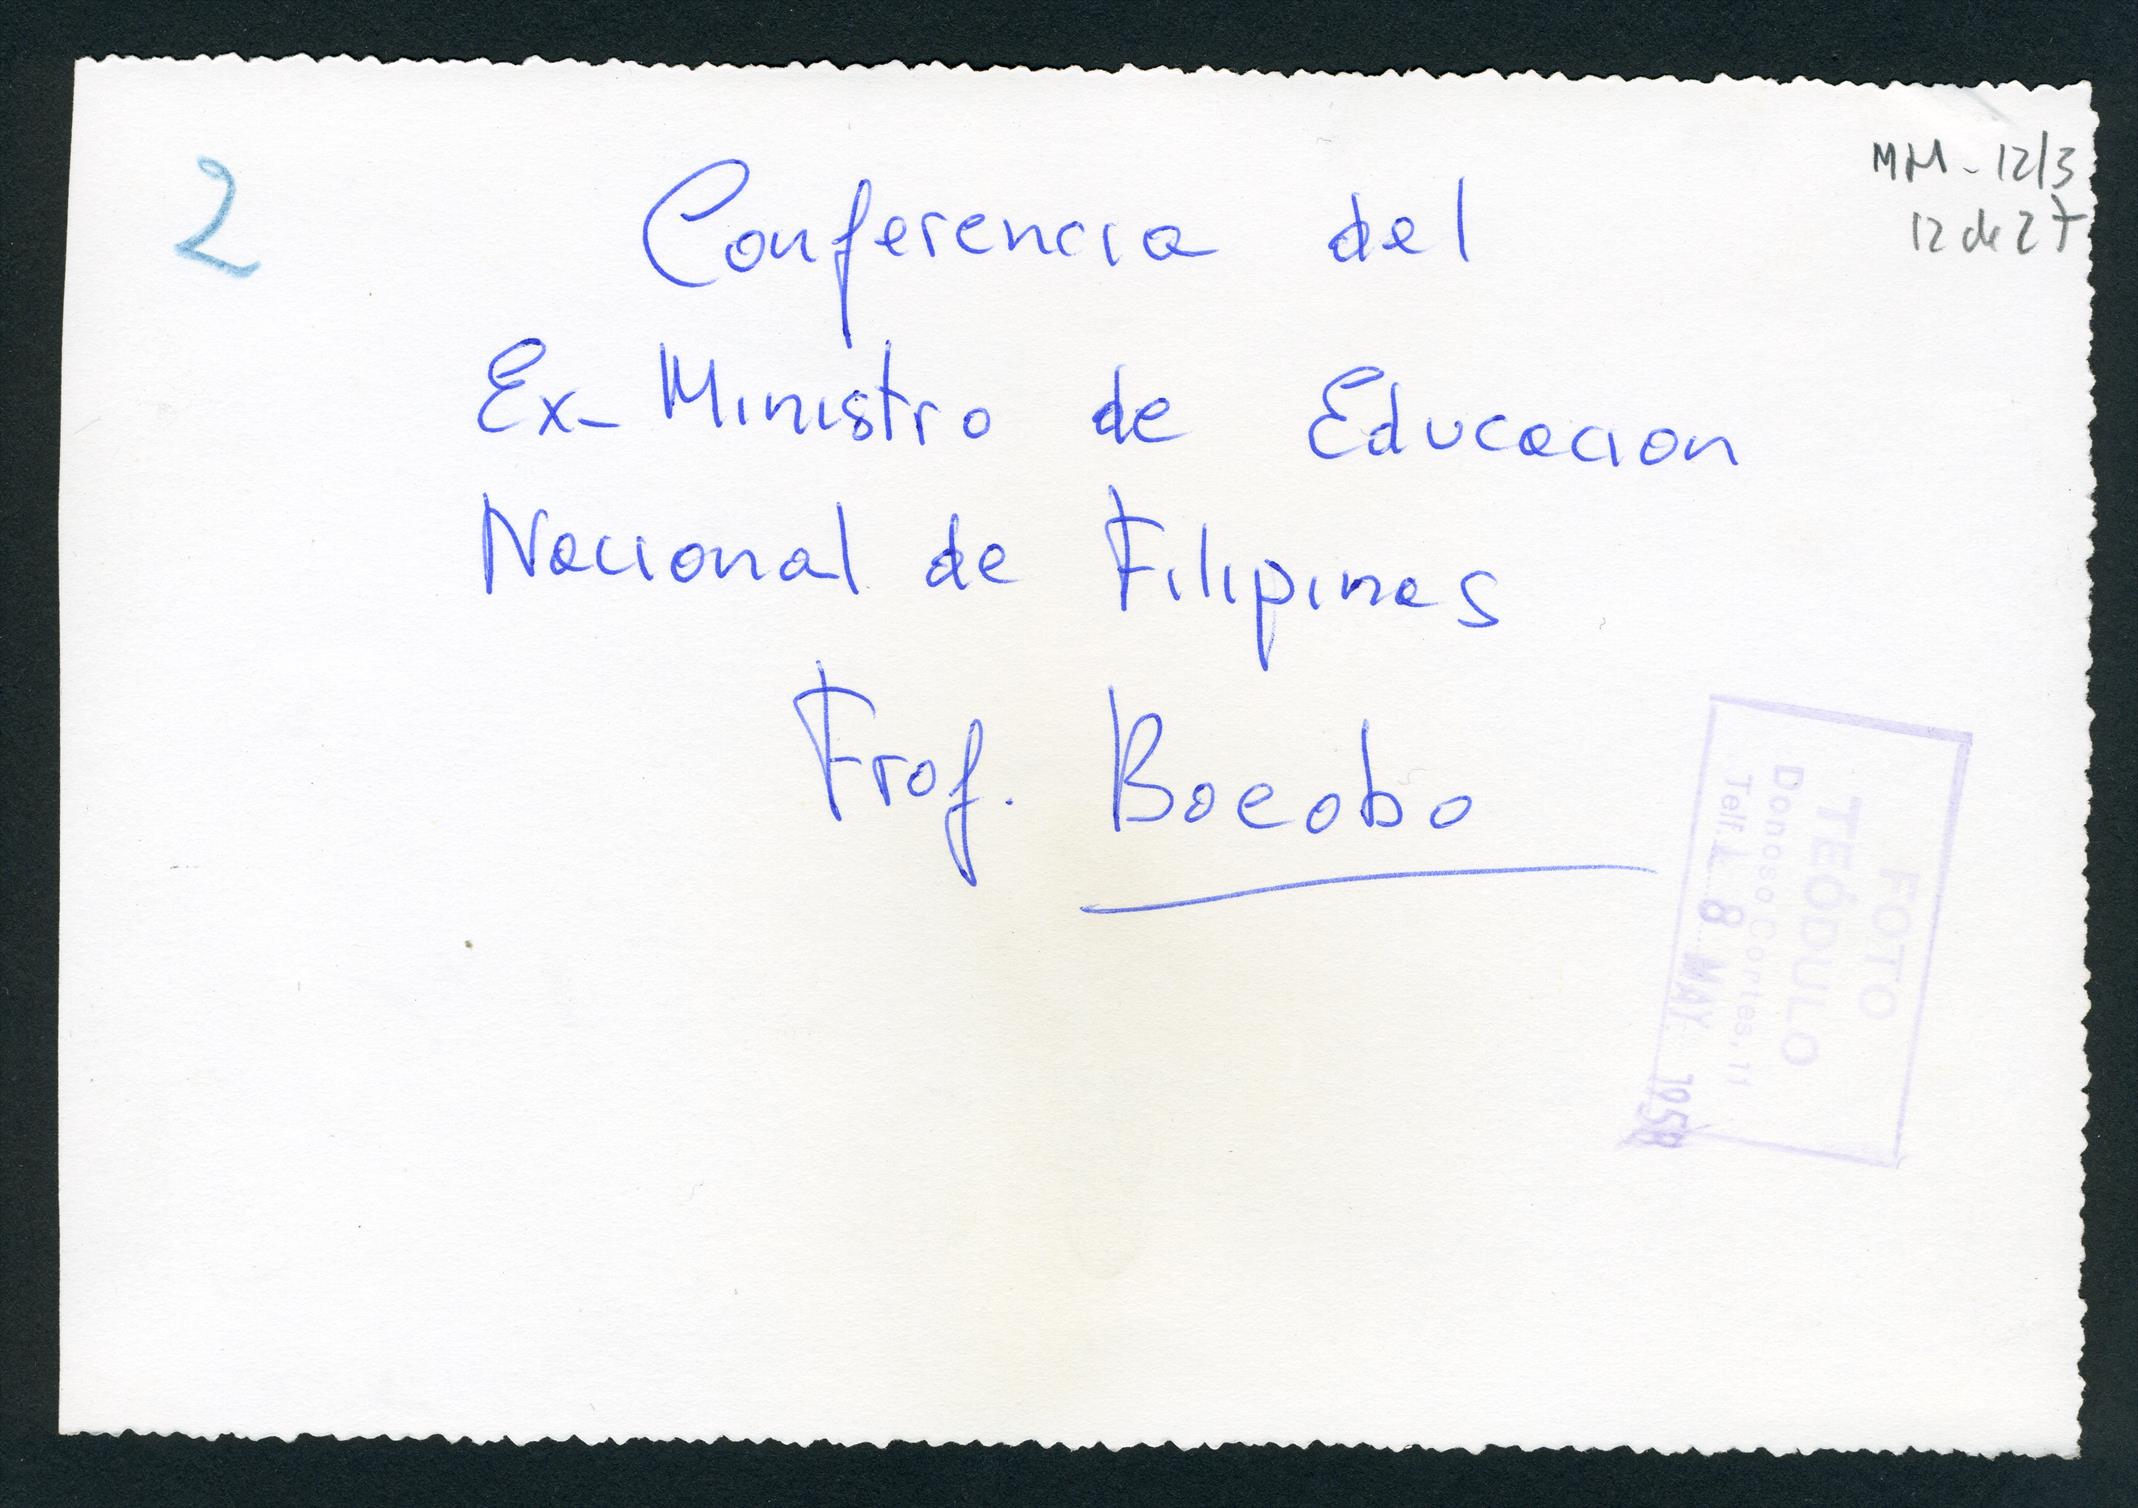 2
MM - 12/3
12 de 27
Conferencia del
Ex-Ministro de Educacion
Nacional de Filipinas
Prof. Bocobo
FOTO
TEÓDULO
Donoso Cortes, 11
Telf.
8 MAY 1958